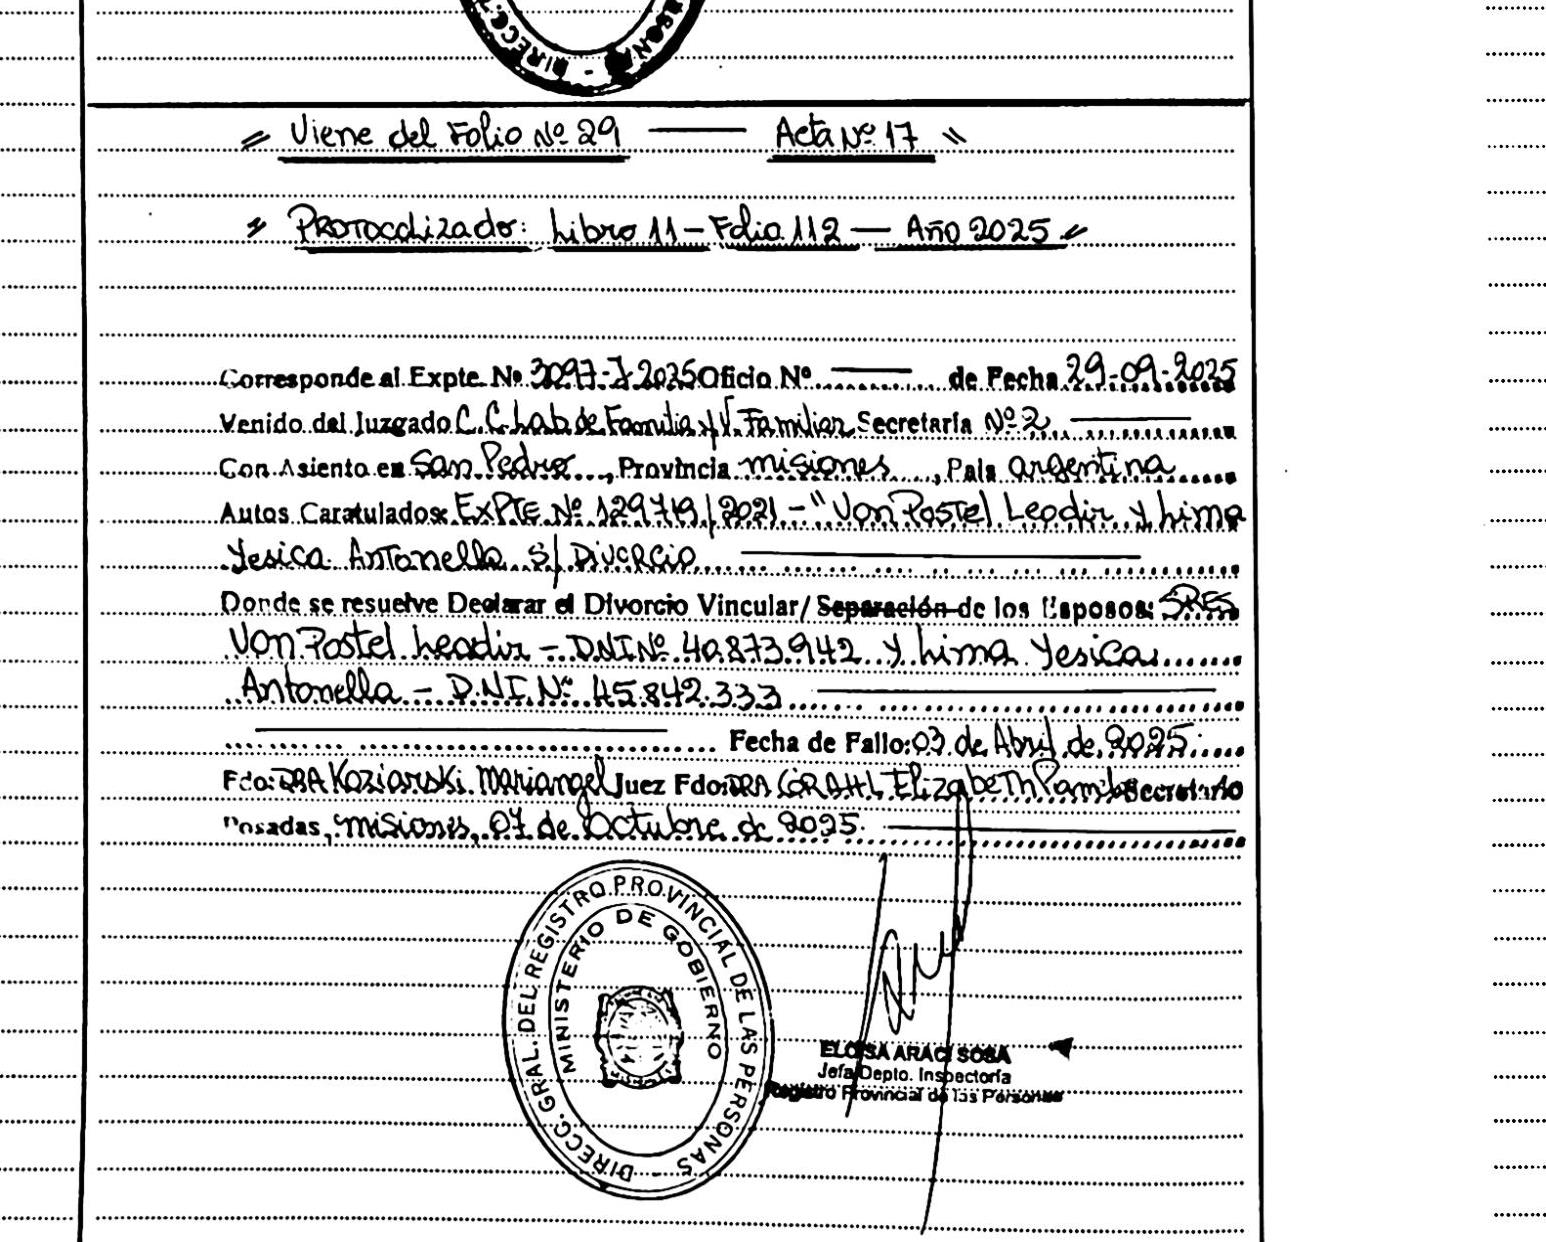 DIRECC. PERSONAS
Viene del Folio Nº 29 — Acta Nº 17
Protocolizado: Libro 11 - Folio 112 — Año 2025
Corresponde al Expte. Nº 3097-J-2025 Oficio Nº — de Fecha 29-09-2025
Venido del Juzgado C.C. Lab. de Familia y V. Familiar Secretaría Nº 2
Con Asiento en San Pedro, Provincia misiones, País argentina
Autos Caratulados: EXPTE Nº 129719/2021 - "Von Postel Leodir y Lima
Yesica Antonella S/ Divorcio
Donde se resuelve Declarar el Divorcio Vincular/ Separación de los Esposos: SRES
Von Postel Leodir - D.N.I Nº 40.873.942 y Lima Yesica
Antonella - D.N.I. Nº 45.842.333
Fecha de Fallo: 03 de Abril de 2025
Fdo: DRA Koziarski Mariangel Juez Fdo: DRA GRAHL Elizabeth Pamela Secretario
Posadas, misiones, 07 de Octubre de 2025
DIRECC. GRAL. DEL REGISTRO PROVINCIAL DE LAS PERSONAS
MINISTERIO DE GOBIERNO
ELOISA ARACI SOSA
Jefa Depto. Inspectoría
Registro Provincial de las Personas